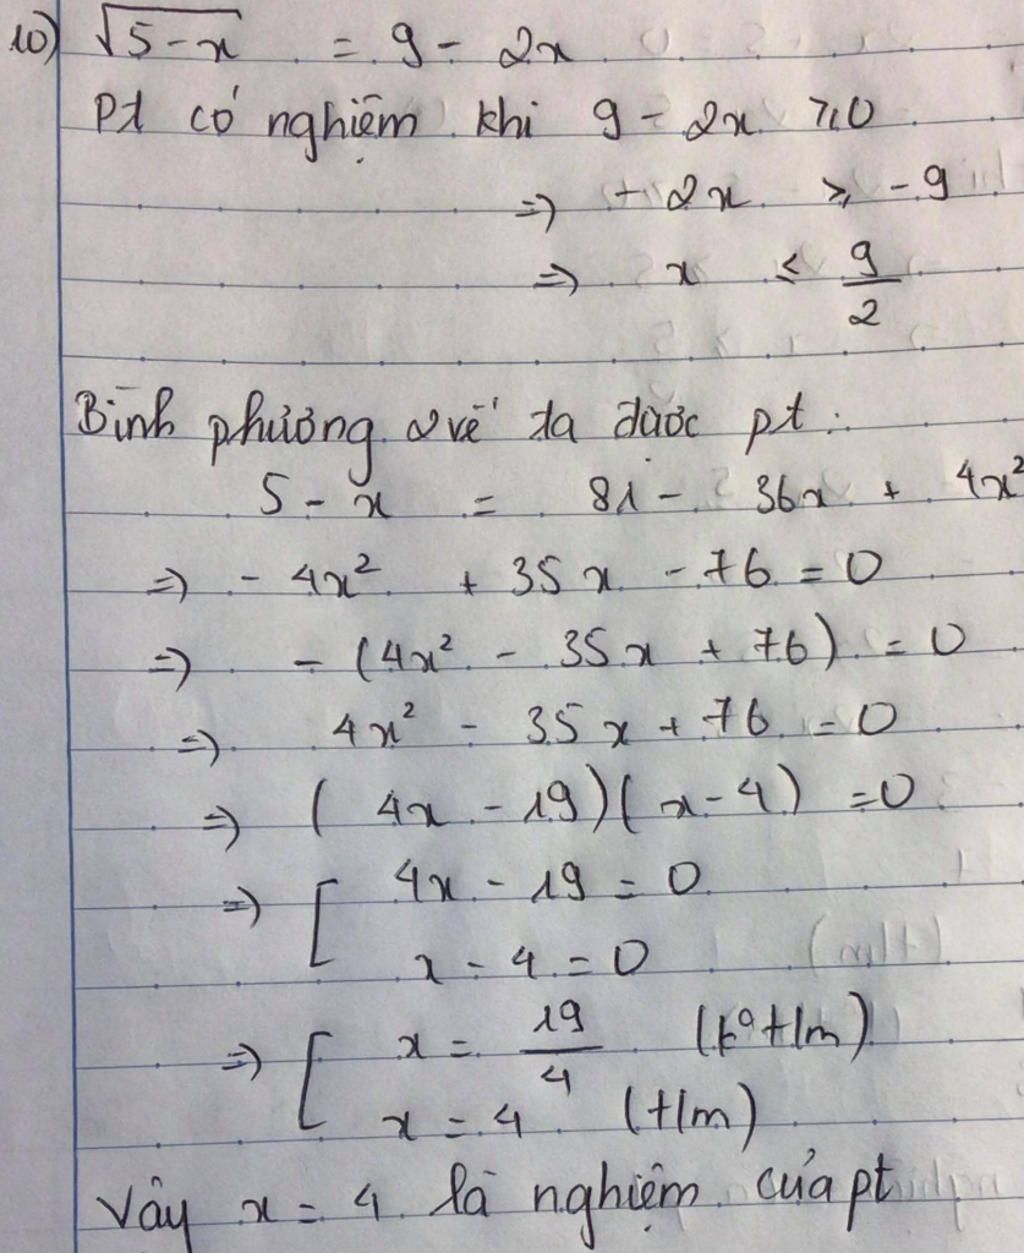 10) √(5-x) = 9 - 2x
Pt có nghiệm khi 9 - 2x ≥ 0
⇒ - 2x ≥ -9
⇒ x ≤ 9/2
Bình phương 2 vế ta được pt:
5 - x = 81 - 36x + 4x²
⇒ - 4x² + 35x - 76 = 0
⇒ - (4x² - 35x + 76) = 0
⇒ 4x² - 35x + 76 = 0
⇒ (4x - 19)(x - 4) = 0
⇒ [ 4x - 19 = 0
x - 4 = 0
⇒ [ x = 19/4 (k° t/m)
x = 4 (t/m)
Vậy x = 4 là nghiệm của pt